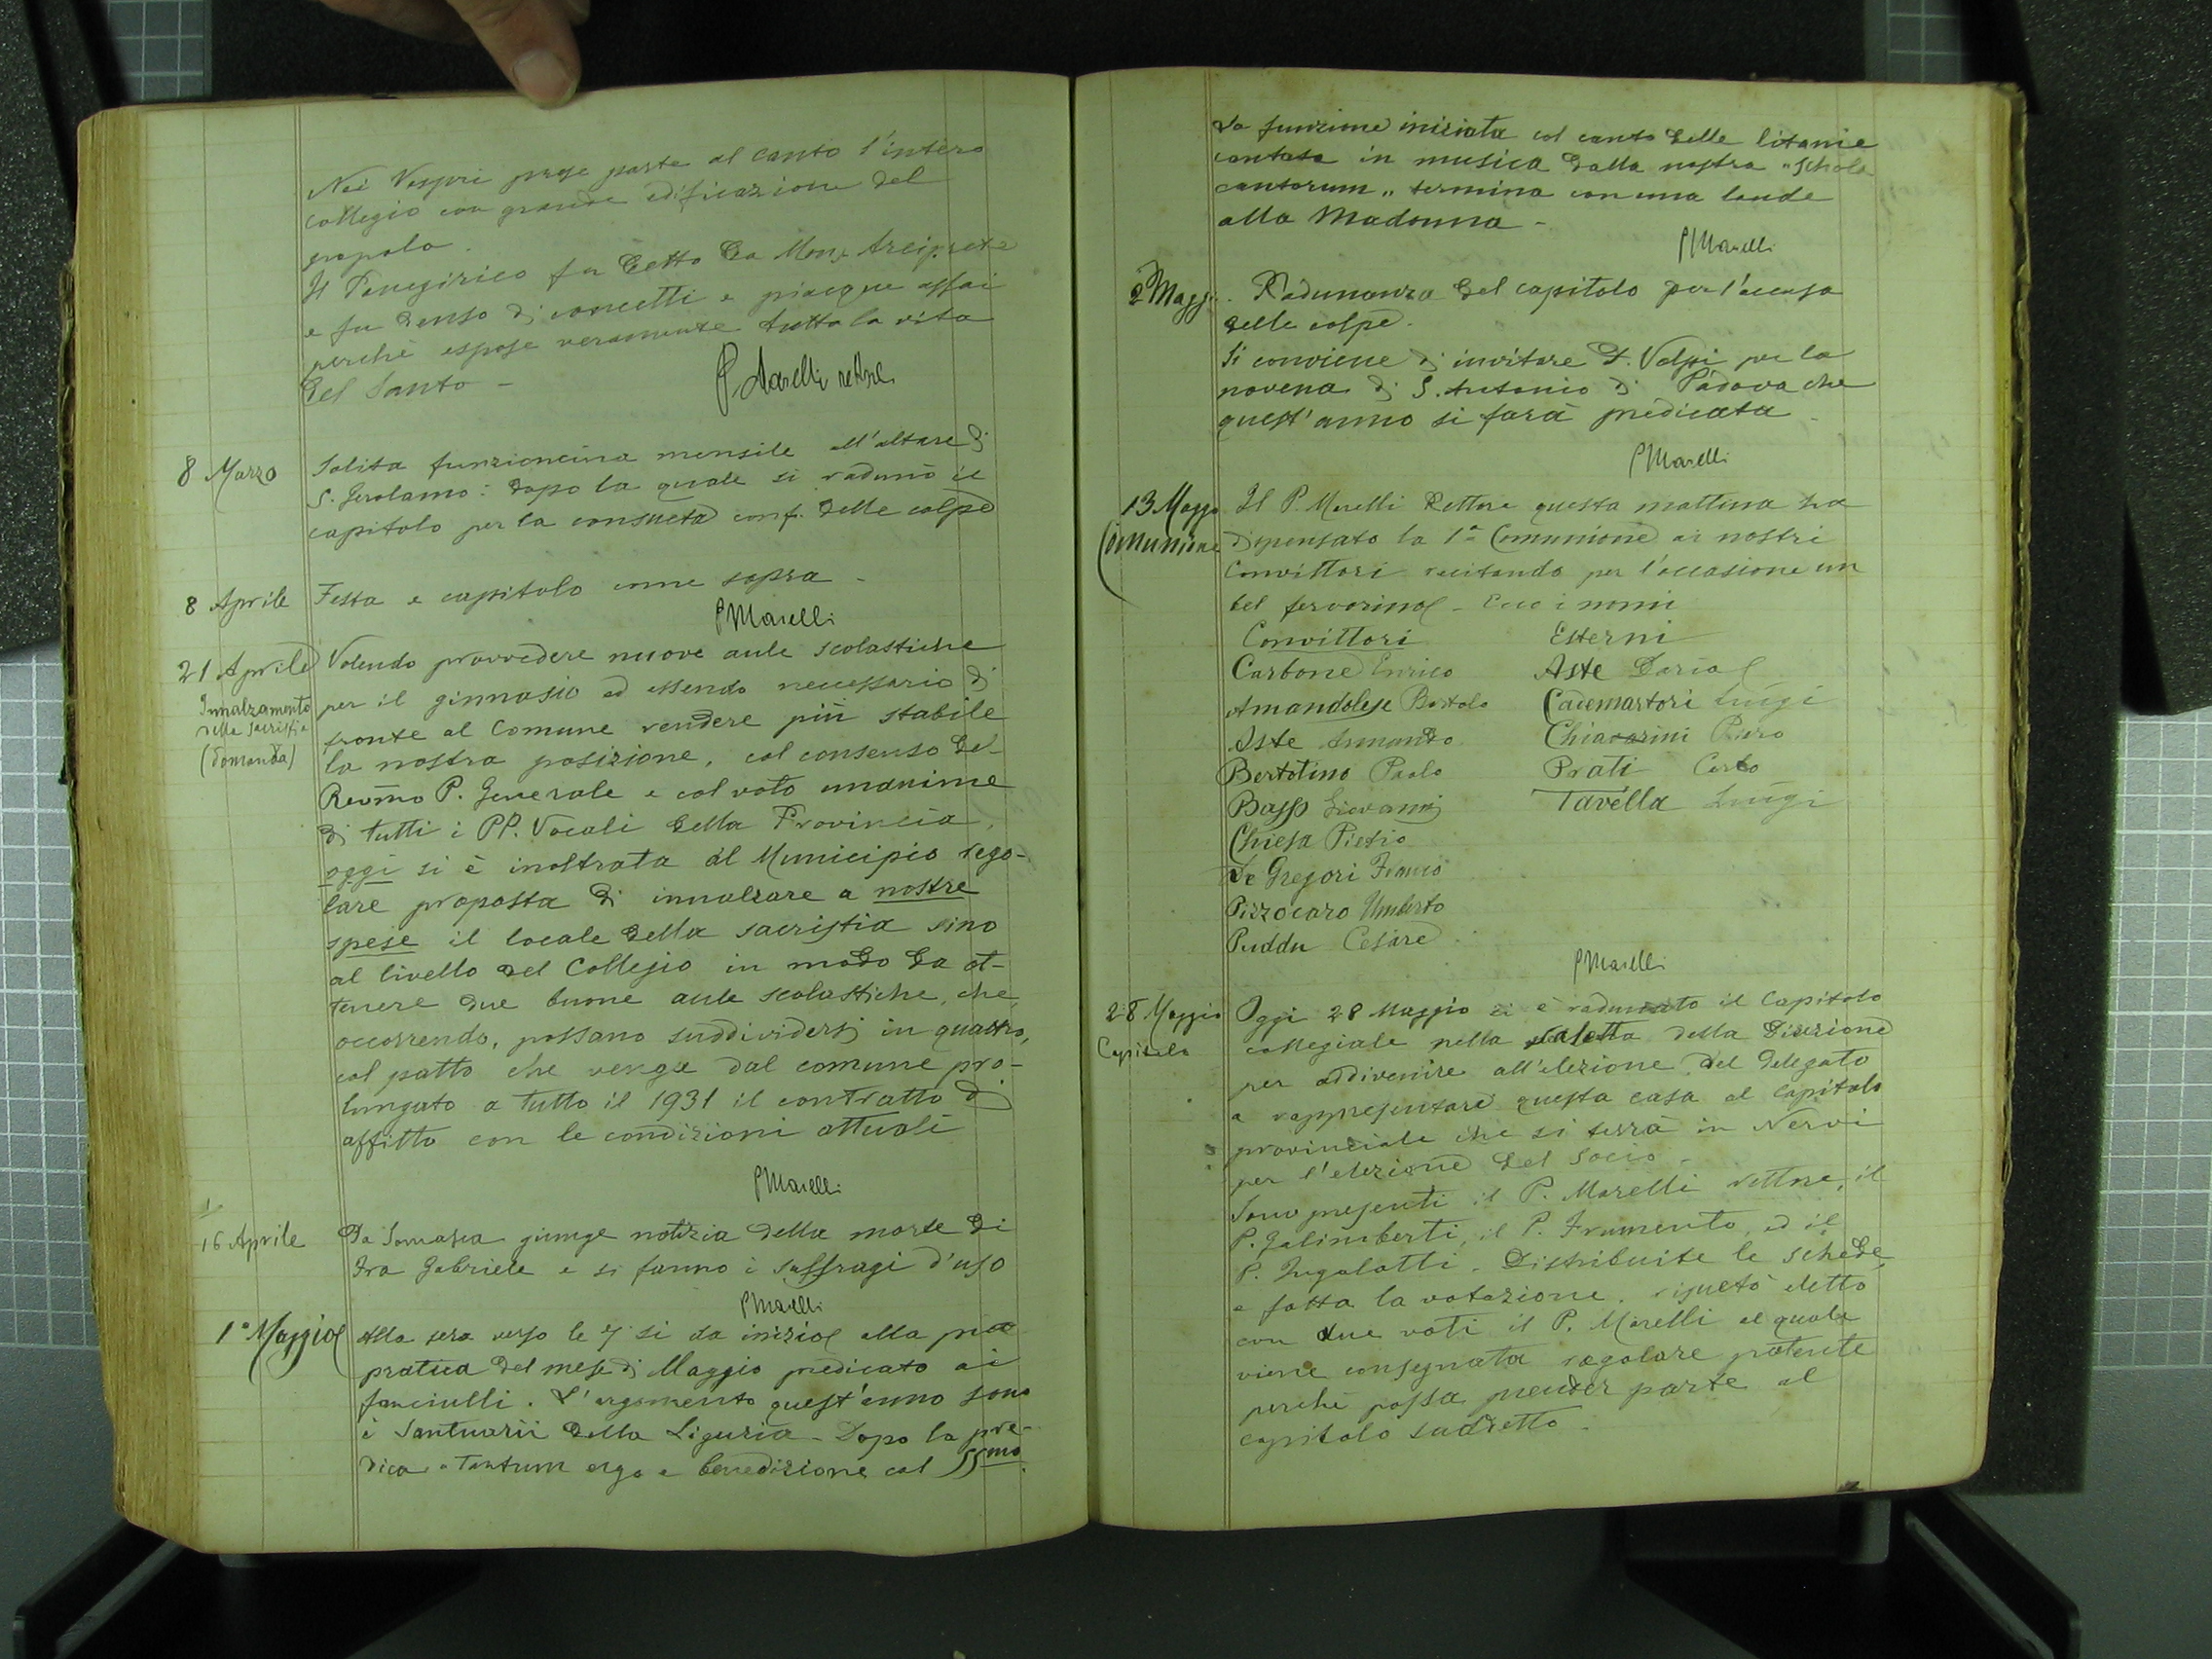 Nei Vespri prese parte al canto l'intero
collegio con grande edificazione del
popolo.
Il Panegirico fu detto da Mons. Arciprete
e fu denso di concetti e piacque assai
perchè espose veramente tutta la vita
del Santo -
P Marelli rettore
8 Marzo
Solita funzioncina mensile all'altare di
S. Gerolamo: dopo la quale si radunò il
capitolo per la consueta conf. delle colpe
8 Aprile
Festa e capitolo come sopra -
P Marelli
21 Aprile
Innalzamento
della sacristia
(domanda)
Volendo provvedere nuove aule scolastiche
per il ginnasio ed essendo necessario di
fronte al Comune rendere più stabile
la nostra posizione, col consenso del
Revmo P. Generale e col voto unanime
di tutti i PP. Vocali della Provincia,
oggi si è inoltrata al Municipio rego-
lare proposta di innalzare a nostre
spese il locale della sacristia sino
al livello del Collegio in modo da ot-
tenere due buone aule scolastiche, che,
occorrendo, possano suddividersi in quattro,
col patto che venga dal comune pro-
lungato a tutto il 1931 il contratto di
affitto con le condizioni attuali
P Marelli
16 Aprile
Da Somasca giunge notizia della morte di
Fra Gabriele e si fanno i suffragi d'uso
P Marelli
1° Maggio
Alla sera verso le 7 si da inizio alla pia
pratica del mese di Maggio predicato ai
fanciulli. L'argomento quest'anno sono
i Santuarii della Liguria - Dopo la pre-
dica Tantum ergo e benedizione col SSmo.
La funzione iniziata col canto delle litanie
cantate in musica dalla nostra "Schola
cantorum" termina con una laude
alla Madonna -
P Marelli
2 Magg.
Radunanza del capitolo per l'accusa
delle colpe.
Si conviene di invitare D. Volpi per la
novena di S. Antonio di Padova che
quest'anno si farà predicata
P Marelli
13 Maggo
Comunione
Il P. Marelli Rettore questa mattina ha
dispensato la 1a Comunione ai nostri
Convittori recitando per l'occasione un
bel fervorino - Ecco i nomi
Convittori Esterni
Carbone Enrico Aste Doria
Amandolese Bartolo Cademartori Luigi
Aste Armando Chiavarini Piero
Bertolino Paolo Prati Carlo
Basso Giovanni Tavella Luigi
Chiesa Pietro
De Gregori Franco
Pizzocaro Umberto
Puddu Cesare
P Marelli
28 Maggio
Capitolo
Oggi 28 Maggio si è radunato il Capitolo
collegiale nella saletta della Direzione
per addivenire all'elezione del delegato
a rappresentare questa casa al Capitolo
provinciale che si terrà in Nervi
per l'elezione del Socio -
Sono presenti il P. Marelli rettore, il
P. Galimberti, il P. Frumento, ed il
P. Ingolotti. Distribuite le schede,
e fatta la votazione, riuscì eletto
con due voti il P. Marelli al quale
viene consegnata regolare patente
perchè possa prender parte al
capitolo sudetto.